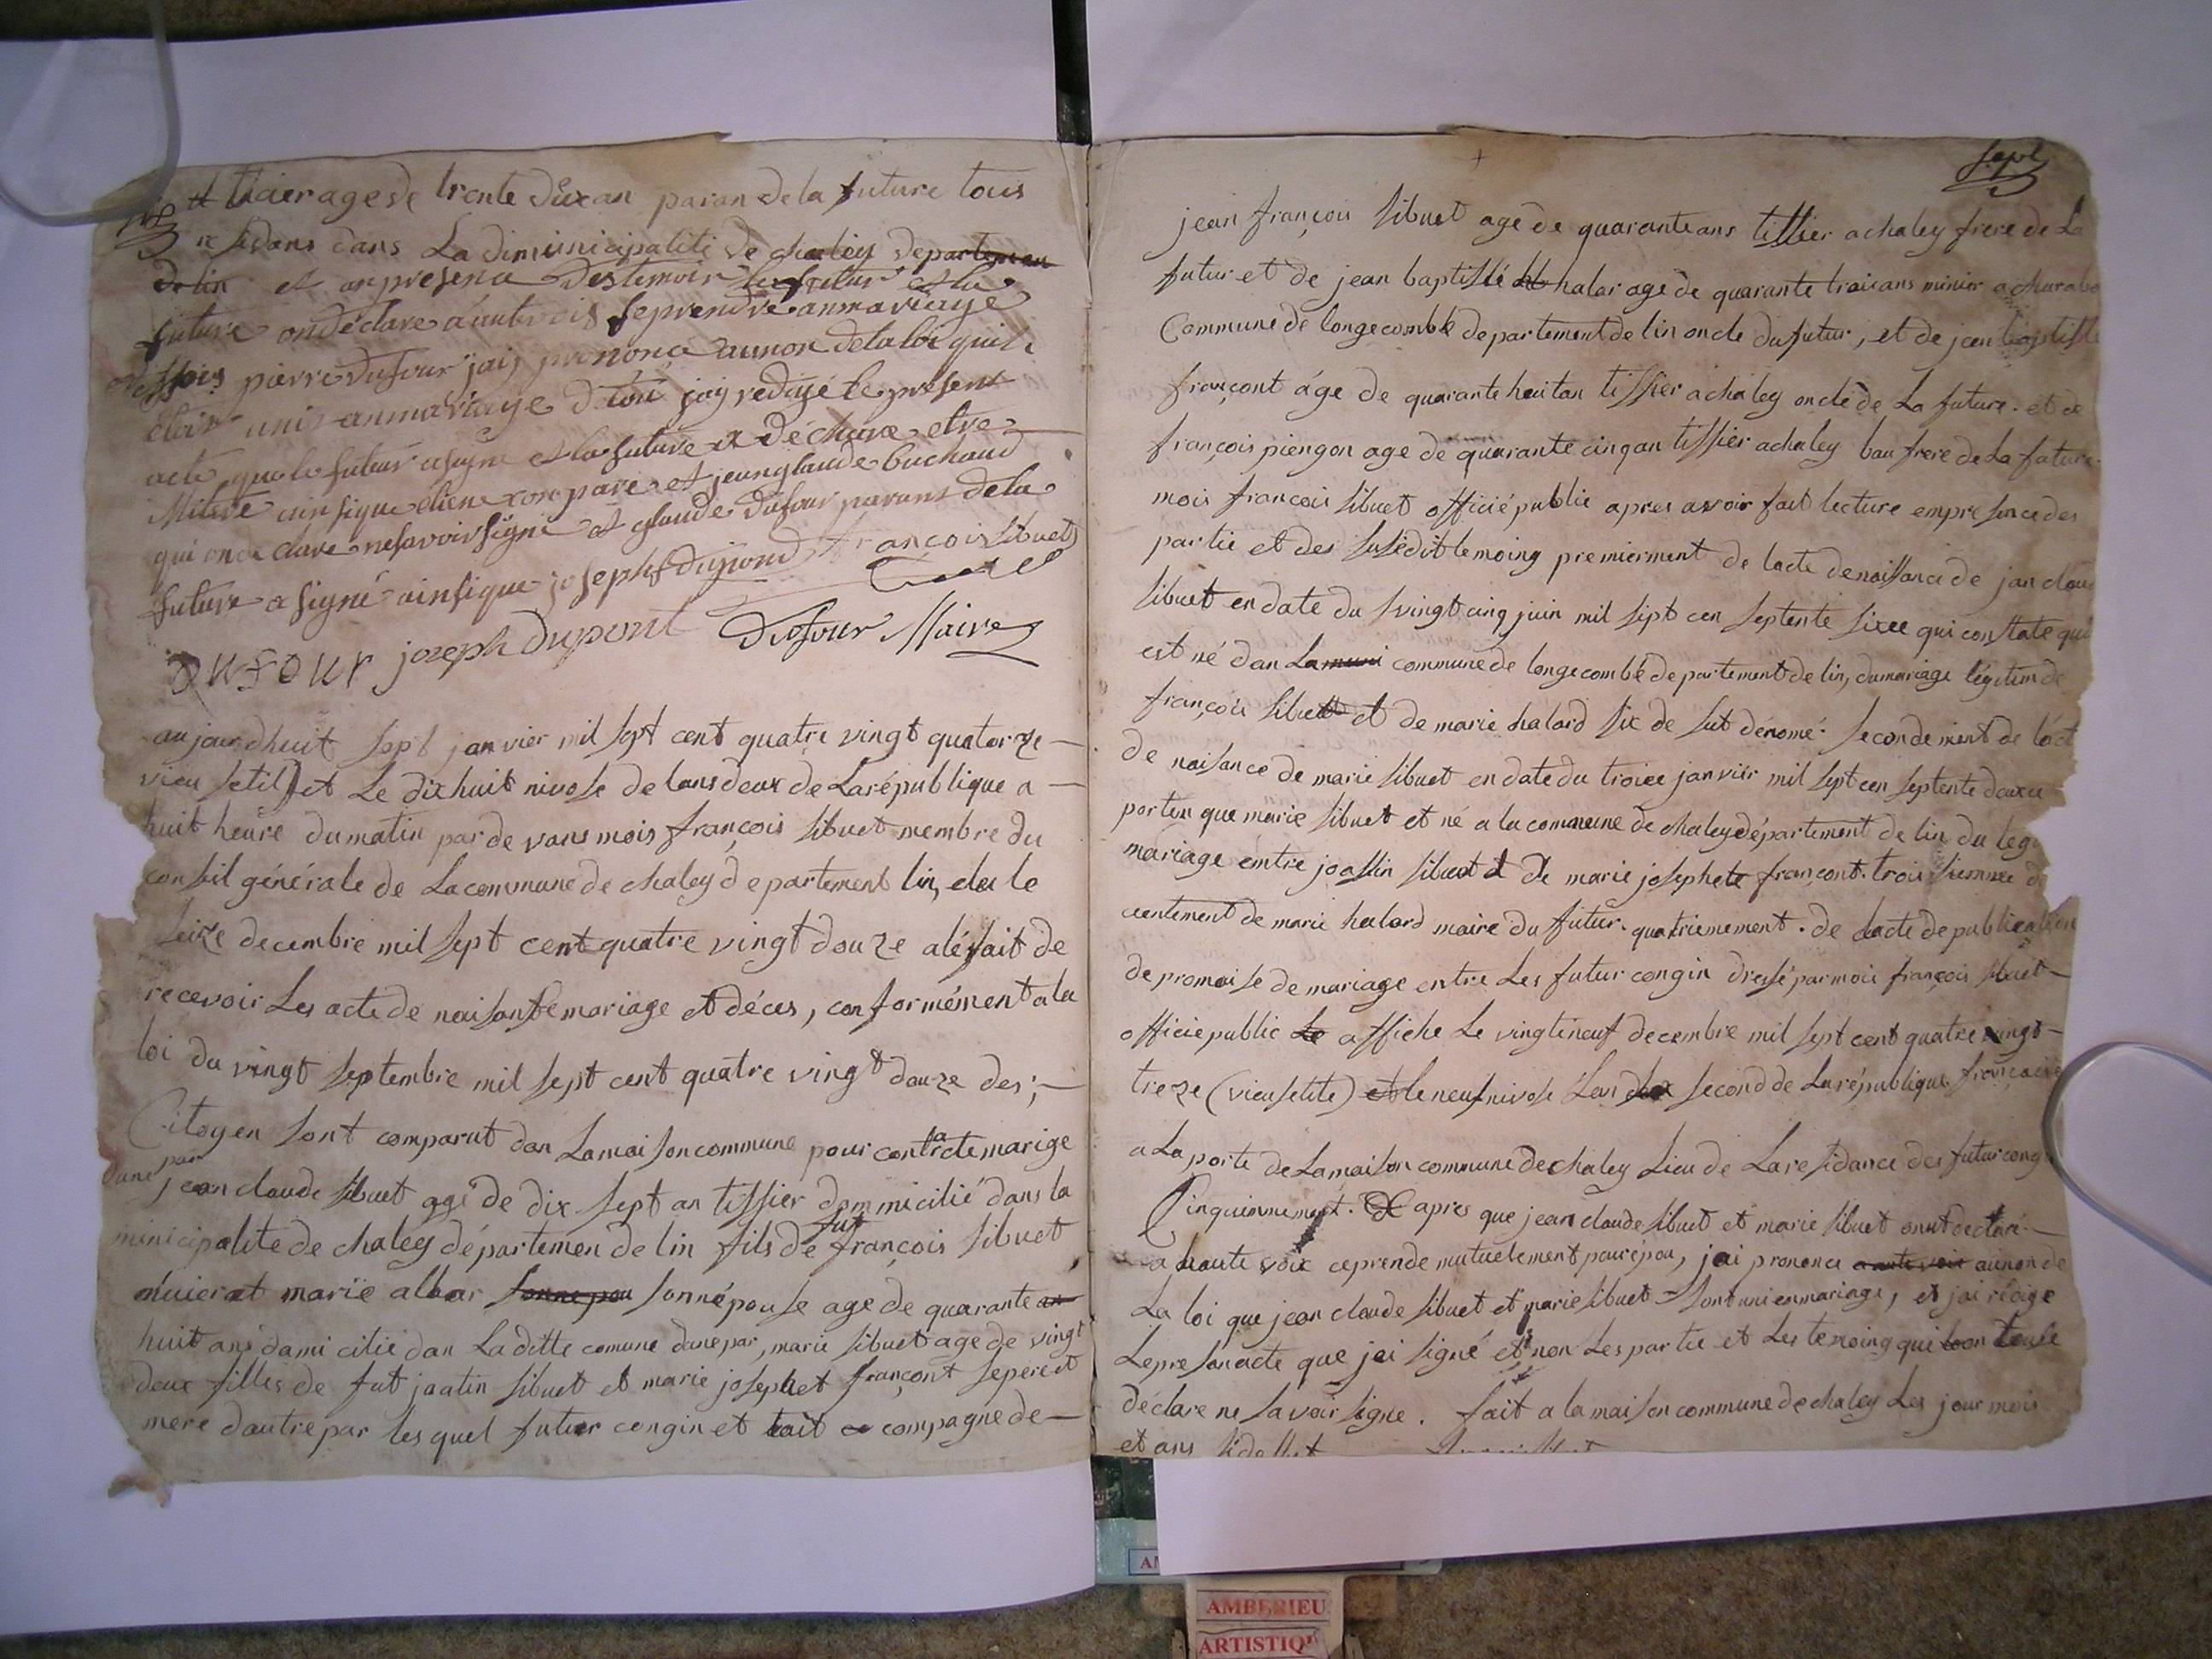 et ticier age de trente dixan paran de la future tous
residans dans La dimunicipalité de chaley departeman
de lin et an presence des temoir le futur et la
future on déclare a autvois se prendre anmariage
pierre Dufour jaiy prononce aunon delaloi quil
etoir unis anmariage jay redigé le present
acte que le futeur a signe et la future a déchare etre
ainsique etiene compare et jeanglaude buchaud
qui on declare ne savoir signé et glaude dufour parans dela
future a signé ainsique joseph dupond françois sibuet
DUFOUR joseph dupont Dufour Maire
aujourdhuit sept janvier mil sept cent quatre vingt quatorze
vieu setil) et Le dixhuit nivose de lans deux de Larépublique a
huit heure dumatin par de vans mois françois sibuet membre du
conseil générale de Lacommune de chaley departement lin, elu le
seize decembre mil sept cent quatre vingt douze aléfait de
recevoir Les acte de naisanse mariage et déces, conformément ala
loi du vingt septembre mil sept cent quatre vingt douze des;
Citoyen sont comparut dan Lamaisoncommune pour contracte marige
dune par jean claude sibuet agé de dix sept an tissier dommicilié dans la
minicipalite de chaley départemen de lin fils de fut françois sibuet
et marie albar sonnepou sonnépouse age de quarante an
huit ans damicilié dan Laditte comune dune par, marie sibuet age de vingt
deux filles de fut jaatin sibuet et marie josephet françont se pere et
mere dautre par les quel futur congin et tait a compagne de
sept
jean françois sibuet age de quaranteans tissier a chaley frere de La
futur et de jean baptisté halar age de quarante troisans minier
Commune de longecombe departement de lin oncle dufutur, et de jean baptiste
françont áge de quarante huitan tissier a chaley oncle de La future. et de
françois piengon age de quarante cinqan tissier a chaley bau frere de La future.
mois francois sibuet officié public apres avoir fait lecture empresence des
partie et des susédit temoing premierment de lacte denaissance de jan claud
sibuet en date du vingt cinq juin mil sept cen septente sixee qui constate qui
est né dan Lamuni commune de longecombé departement de lin, dumariage légitim de
françois sibuet et de marie halard six de sut dénomé. secondement de lact
de naisance de marie sibuet en date du troice janvier mil sept cen septente douxe
porten que marie sibuet et né a la commune de chaley département de lin du legi
mariage emtre joassin sibuet et de marie josephete françont. troisiemmee d
centement de marie halard maire du futur. quatriemement. de lacte de publication
de promaise de mariage entre Les futur congin dressé par mois françois sibuet
officie public Le affiche Le vingtineuf decembre mil sept cent quatre vingt
treze (vieu setite) et le neuf nivose Lan deux second de Larépublique françaice
a La porte de Lamaison commune de chaley Lieu de Laresidance des futur cong
Cinquiennement. apres que jean claude sibuet et marie sibuet onut declaré
a haute voix ceprende mutuelement pour epou, jai prononce a aute voix aunon de
La loi que jean claude sibuet et marie sibuet sont uni enmariage, et jai rédige
Lepresanacte que jai signé et non Les partie et Les temoing qui toute
déclare ne savoir signe. fait a la maison commune de chaley Les jour mois
et ans
AMBERIEU
ARTISTIQ